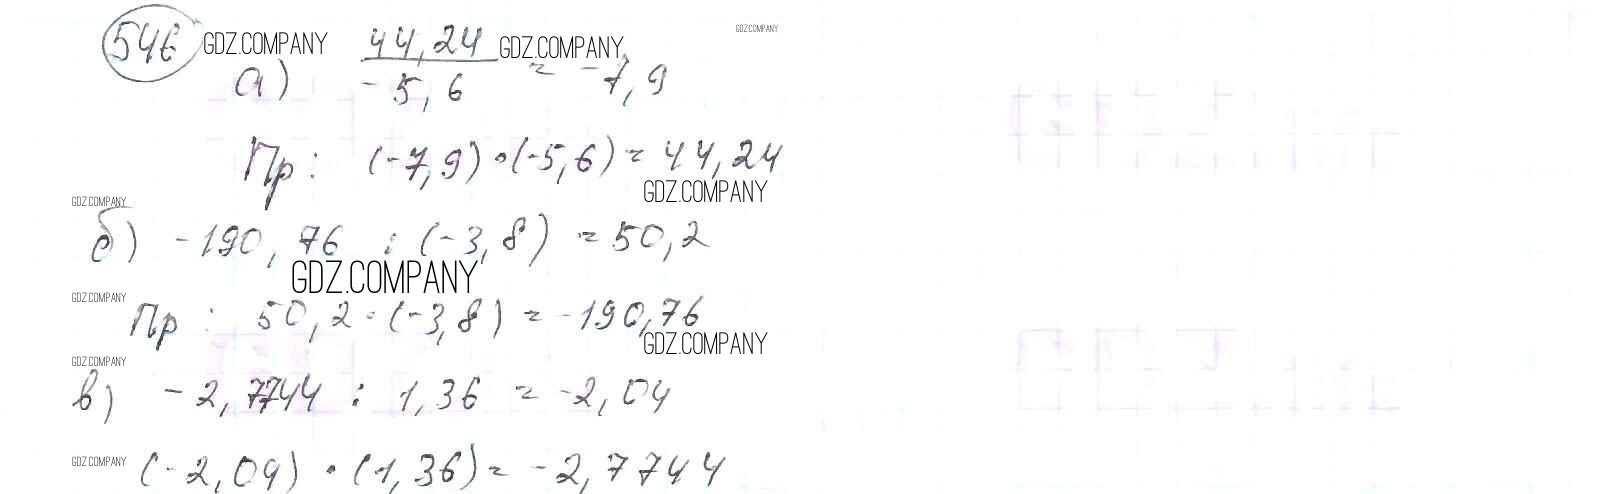 546 GDZ.COMPANY 44,24 GDZ.COMPANY GDZ.COMPANY
а) -5,6 = -7,9
Пр: (-7,9)·(-5,6) = 44,24
GDZ.COMPANY GDZ.COMPANY
б) -190,76 : (-3,8) = 50,2
GDZ.COMPANY
GDZ.COMPANY Пр: 50,2·(-3,8) = -190,76
GDZ.COMPANY
GDZ.COMPANY
в) -2,7744 : 1,36 = -2,04
GDZ.COMPANY (-2,04)·(1,36) = -2,7744